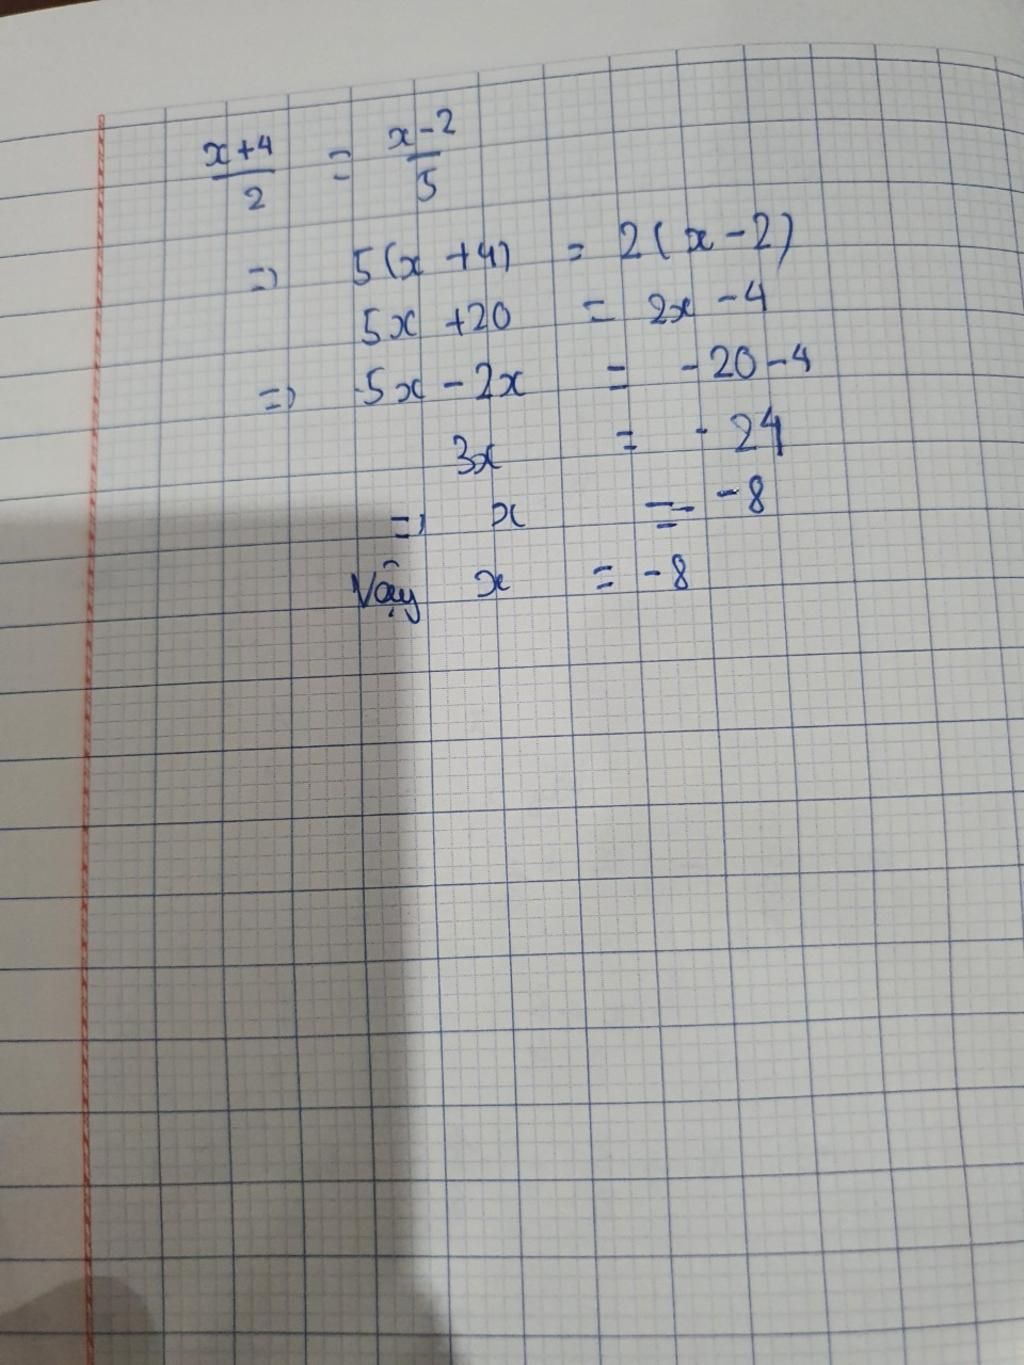 x+4/2 = x-2/5
=> 5(x+4) = 2(x-2)
5x+20 = 2x-4
=> 5x-2x = -20-4
3x = -24
=> x = -8
Vậy x = -8